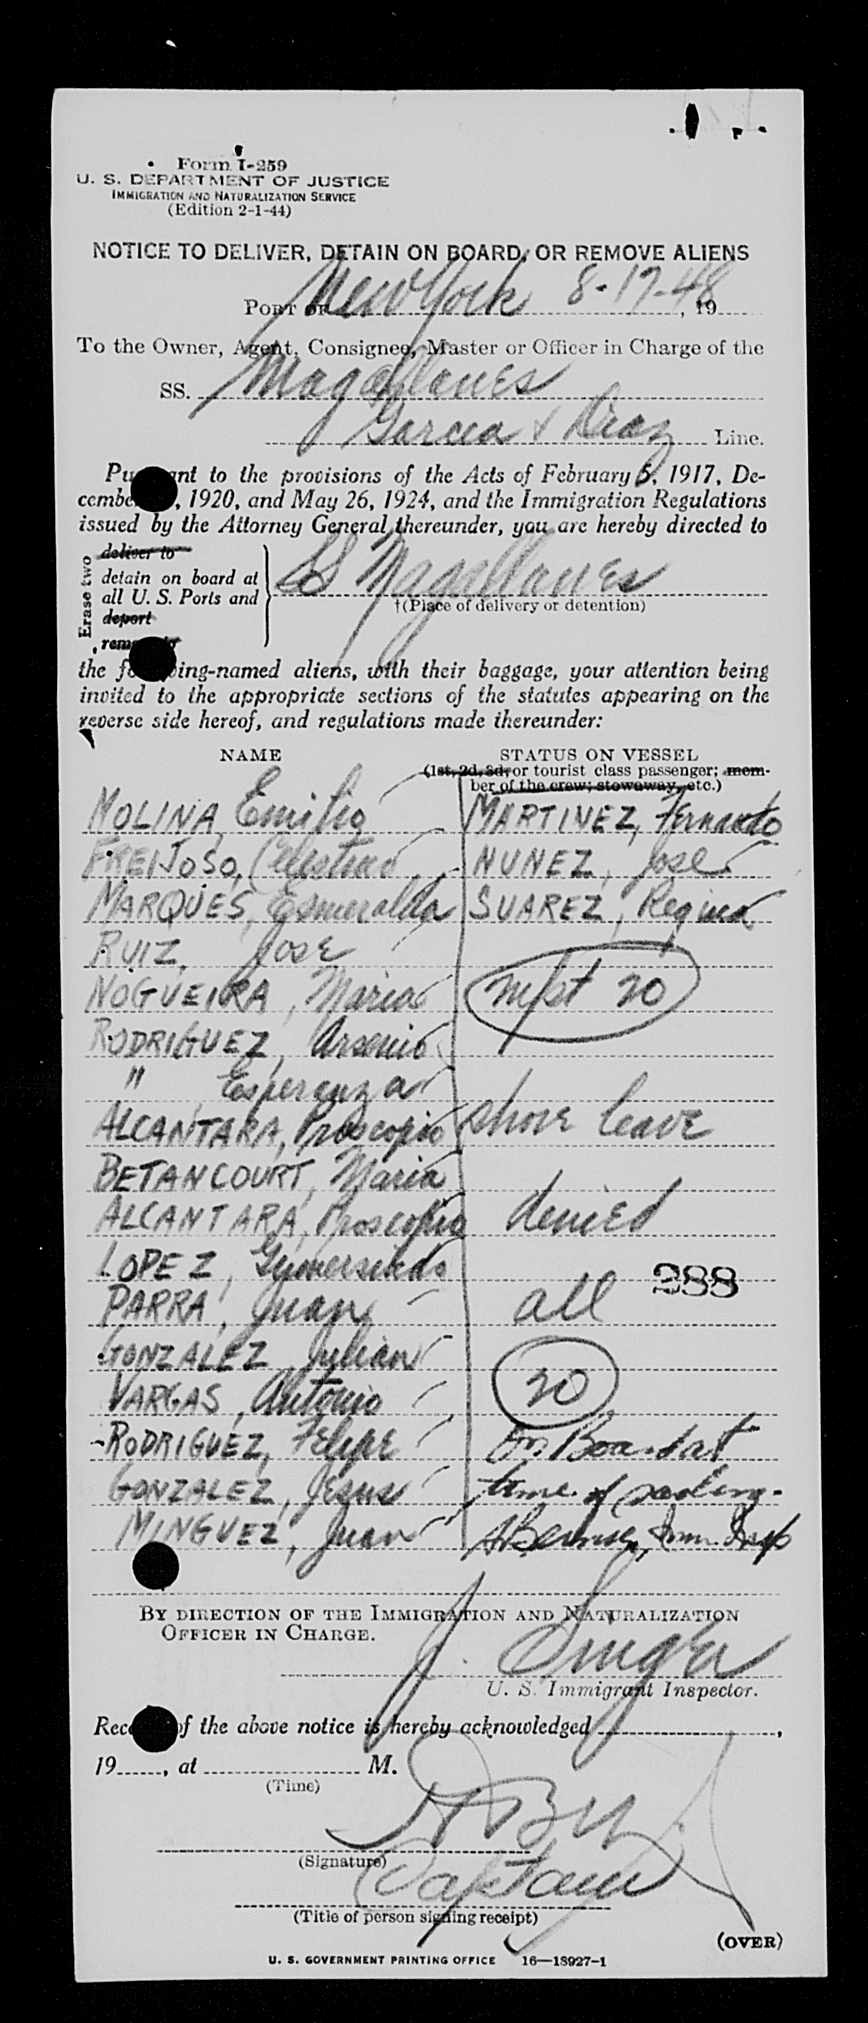 Form I-259
U. S. DEPARTMENT OF JUSTICE
IMMIGRATION AND NATURALIZATION SERVICE
(Edition 2-1-44)
NOTICE TO DELIVER, DETAIN ON BOARD, OR REMOVE ALIENS
PORT OF New York 8-17-48, 19
To the Owner, Agent, Consignee, Master or Officer in Charge of the
SS. Magallanes
Garcia & Diaz Line.
Pu ant to the provisions of the Acts of February 5, 1917, De-
cembe , 1920, and May 26, 1924, and the Immigration Regulations
issued by the Attorney General thereunder, you are hereby directed to
Erase two
deliver to
detain on board at
all U. S. Ports and
deport
rem
SS Magallanes
†(Place of delivery or detention)
the fo ing-named aliens, with their baggage, your attention being
invited to the appropriate sections of the statutes appearing on the
reverse side hereof, and regulations made thereunder:
NAME STATUS ON VESSEL
(1st, 2d, 3d, or tourist class passenger; mem-
ber of the crew; stowaway, etc.)
MOLINA, Emilio MARTINEZ, Fernando
FREIJOSO, Celestino NUNEZ, Jose
MARQUES, Esmeralda SUAREZ, Regina
RUIZ, Jose
NOGUEIRA, Maria 20
RODRIGUEZ, Arsenio
" Esperanza
ALCANTARA, Proscopio shore leave
BETANCOURT, Maria
ALCANTARA, Proscopio denied
LOPEZ, Gumersindo
288
PARRA, Juan all
GONZALEZ, Julian
VARGAS, Antonio 20
RODRIGUEZ, Felipe On Board at
GONZALEZ, Jesus time of sailing.
MINGUEZ, Juan Imm. Insp
BY DIRECTION OF THE IMMIGRATION AND NATURALIZATION
OFFICER IN CHARGE.
J. Singer
U. S. Immigrant Inspector.
Rec of the above notice is hereby acknowledged ,
19 , at M.
(Time)
(Signature)
Captain
(Title of person signing receipt)
(OVER)
U. S. GOVERNMENT PRINTING OFFICE 16—18927-1